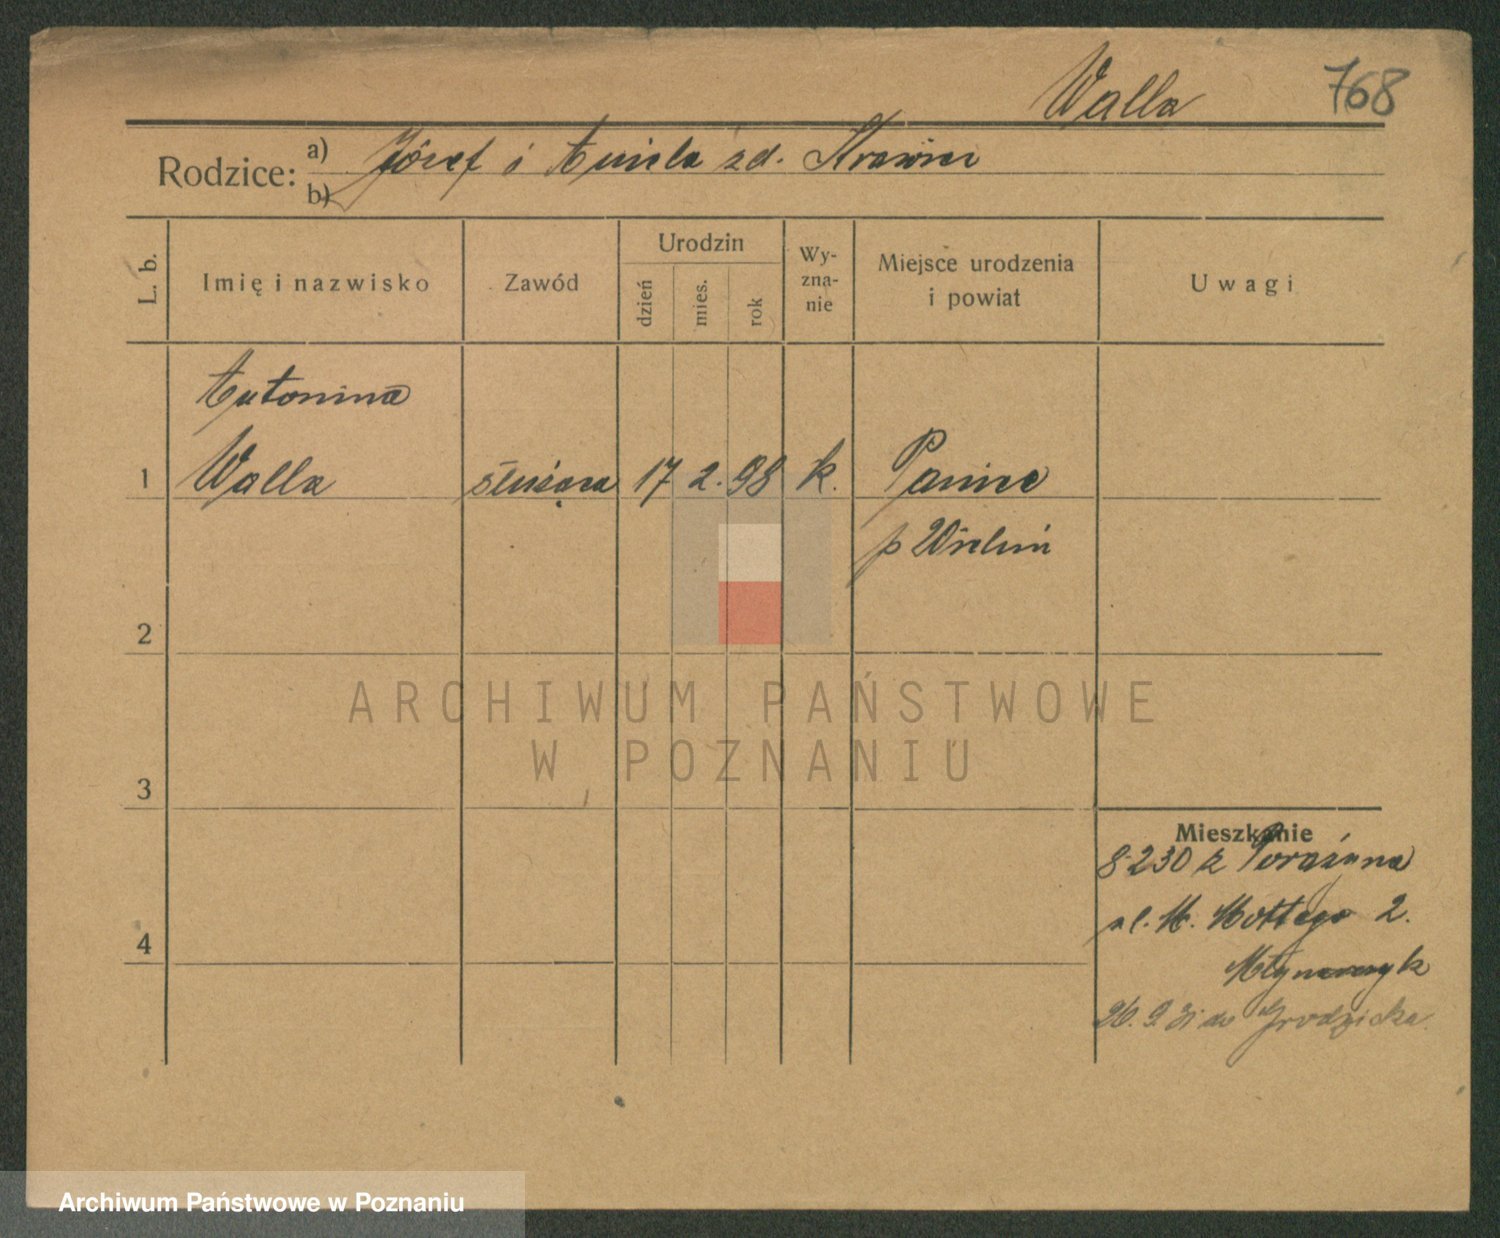 Walla 768
Rodzice: a) Józef i Aniela zd. Krawiec
b)
L. b. Imię i nazwisko Zawód Urodzin dzień mies. rok Wy-zna-nie Miejsce urodzenia i powiat Uwagi
Antonina
1 Walla służąca 17 2. 98 k. Panice
p Wieluń
2
ARCHIWUM PAŃSTWOWE
W POZNANIU
3
Mieszkanie
8·230 z Porażyna
ul. M. Mottego 2.
4
Młynarczyk
26. 9. 31 do Grodziska
Archiwum Państwowe w Poznaniu